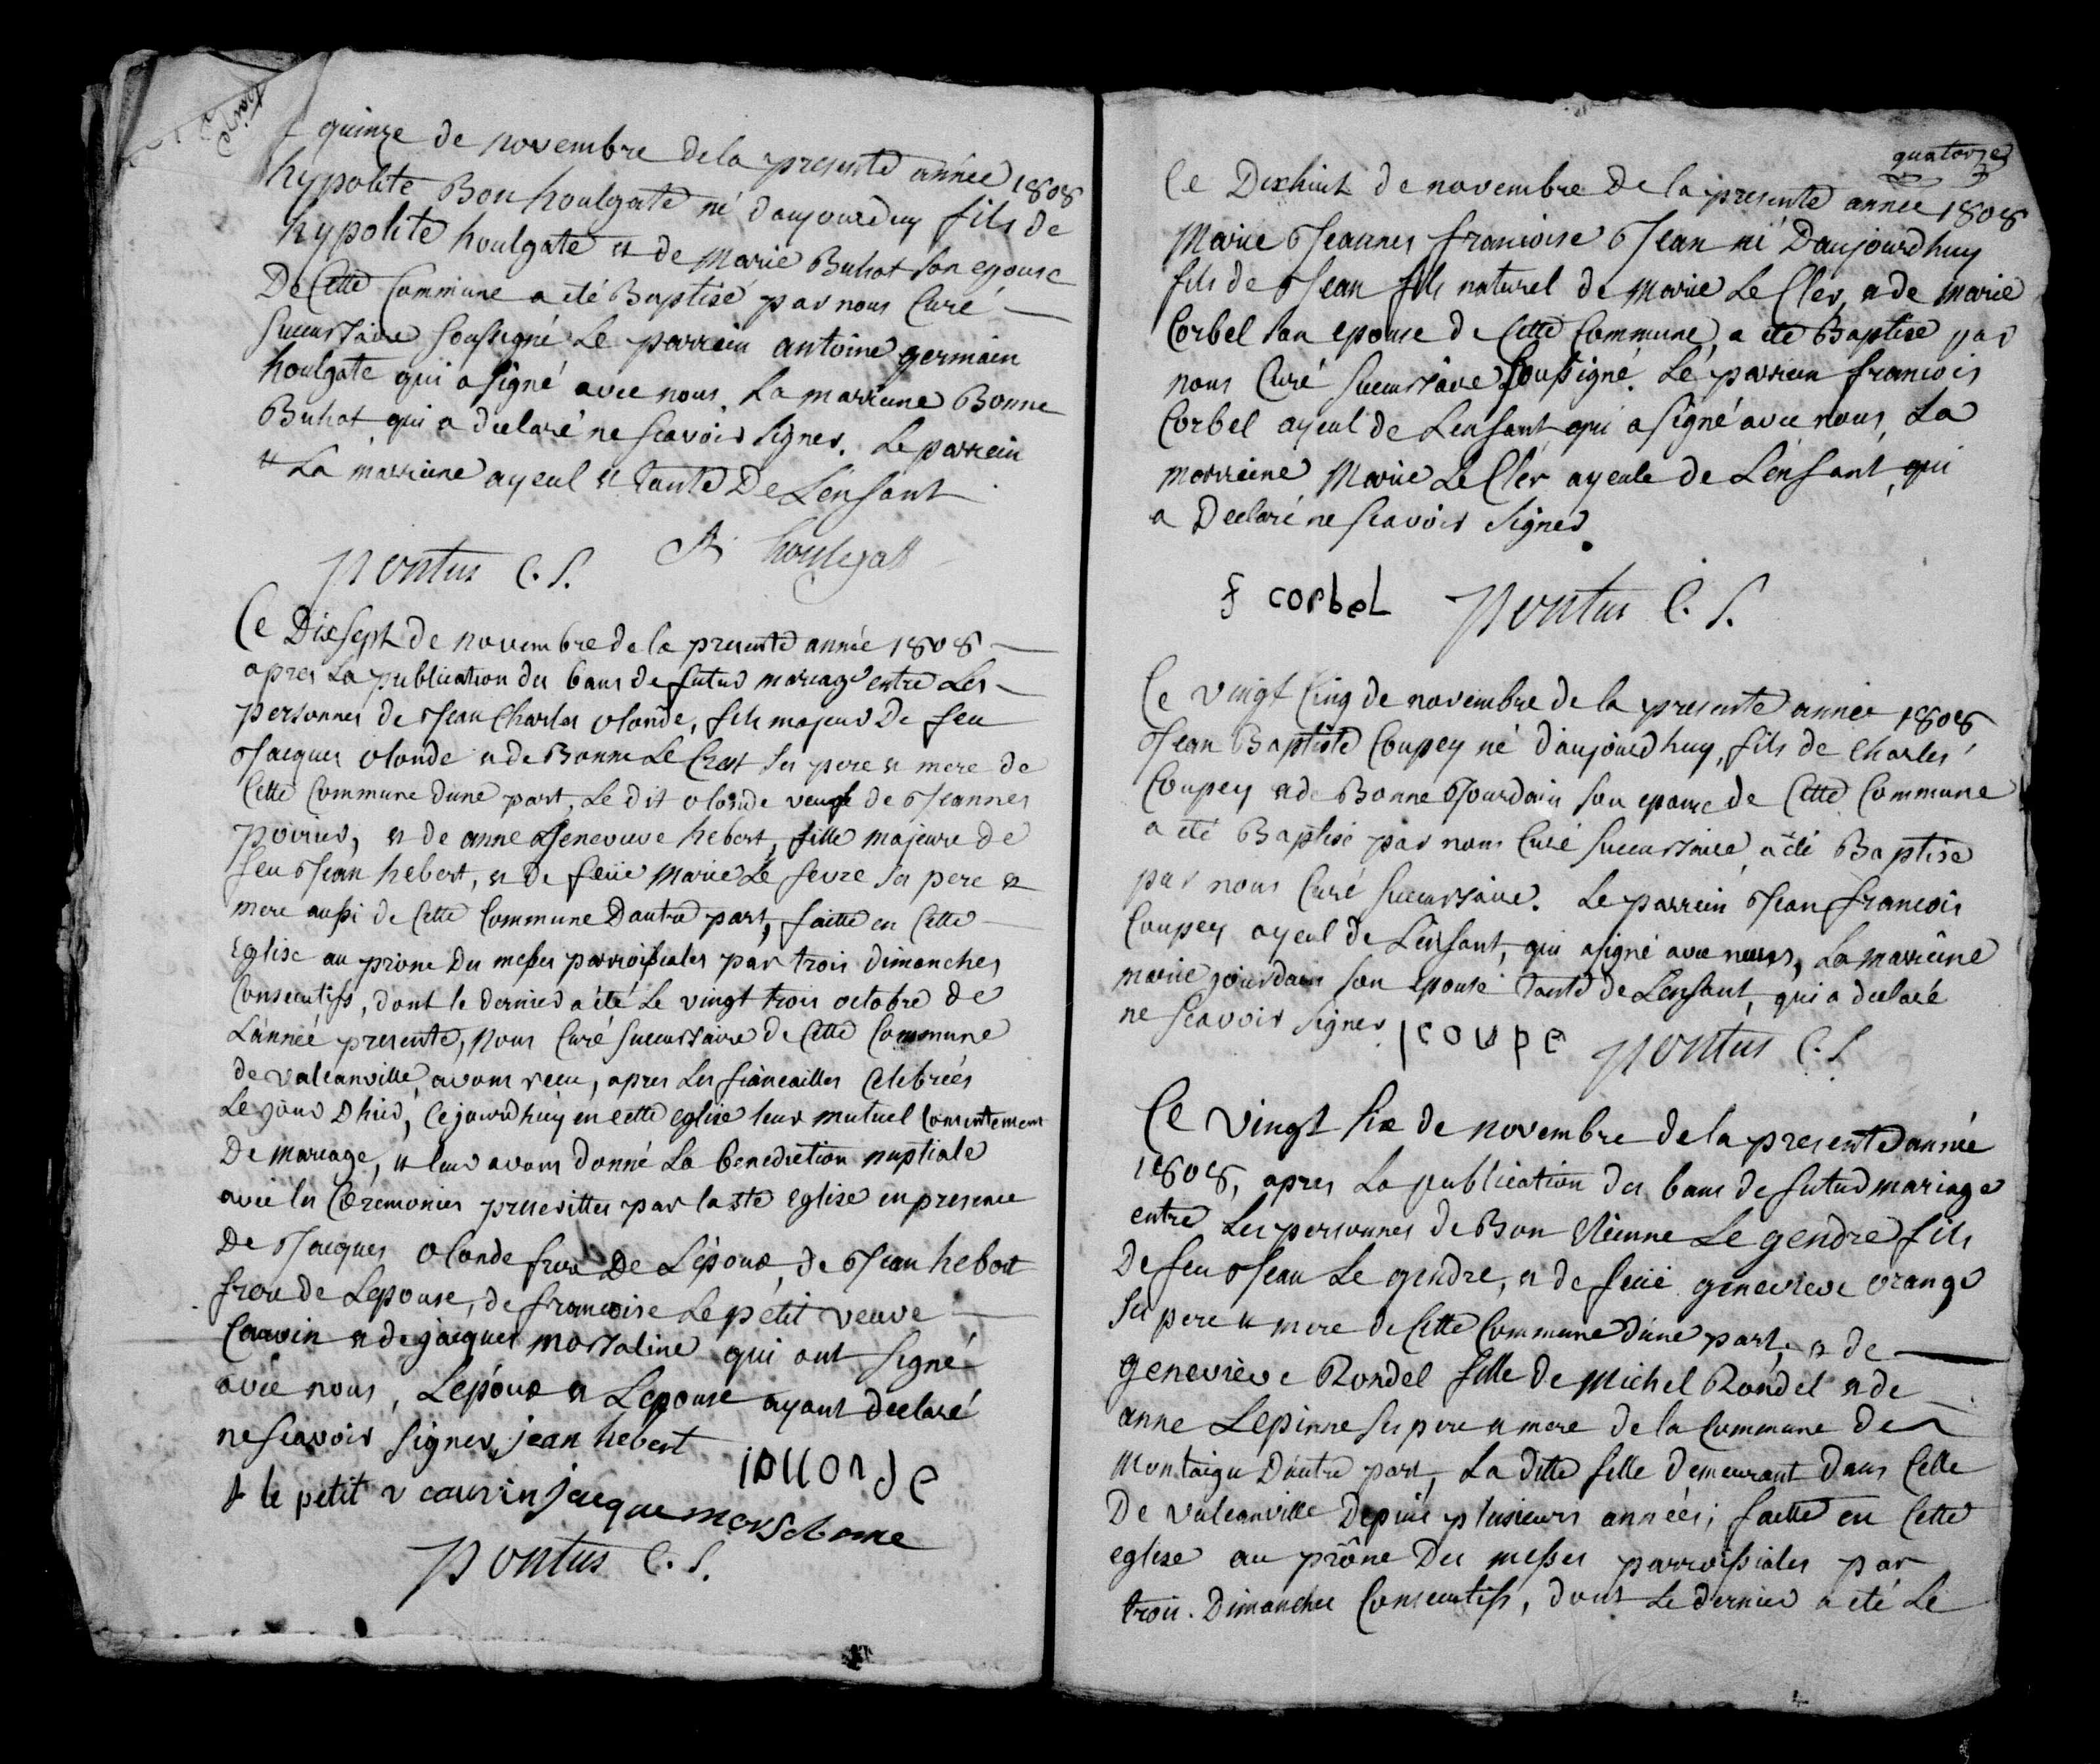 quinze de novembre de la presente année 1808
hypolite Bon houlgate né daujourduy fils de
hypolite houlgate et de Marie Buhot son epouse
De Cette Commune a eté Baptisé par nous Curé
succursaire soussigné Le parrein antoine germain
houlgate qui a signé avec nous, La marreine Bonne
Buhot qui a declaré ne scavoir signer. Le parrein
et La marreine ayeul et tante De Lenfant
Pontus C. S. houlegatt
Ce Dixsept de novembre de la presente année 1808
apres La publication des bans de futur mariage entre Les
personnes de Jean Charles olonde, fils majeur De feu
Jacques olonde et de Bonne Le Crest ses pere et mere de
Cette Commune dune part, Le dit olonde veuf de Jeannes
poirier, et de anne Genevieve hebert, fille majeure de
feu Jean hebert, et de feüe Marie Le fevre ses pere et
mere aussi de Cette Commune Dautre part, faitte en Cette
Eglise au prone Des messes parroissiales par trois dimanches
Consecutifs, dont le dernier a été Le vingt trois octobre de
Lannée presente, Nous Curé succursaire de Cette Commune
de valcanville, avons recu, apres Les fiancailles Celebrées
Le jour Dhier, Cejourdhuy en cette eglise leur mutuel Consentement
De mariage, et leur avons donné La benediction nuptiale
avec les Cérémonies prescrittes par la ste Eglise en presence
De Jacques olonde frere De Lépoux, de Jean hebert
frere de Lepouse, de francoise Le petit veuve
Cauvin et de jacques morsaline qui ont signé
avec nous, Lepoux et Lepouse ayant declaré
ne scavoir signer, jean hebert
iollonde
f le petit v cauvin jacque morsolinne
Pontus C. S.
quatorze
Ce Dixhuit de novembre De la presente année 1808
Marie Jeannes francoise Jean né Daujourdhuy
fils de Jean fils naturel de Marie Le Cler, et de Marie
Corbel son epouse de Cette Commune, a eté Baptisé par
nous Curé succursaire soussigné. Le parrein francois
Corbel ayeul de Lenfant, qui a signé avec nous, La
marreine Marie Le Cler ayeule de Lenfant, qui
a Declaré ne scavoir signer.
f corbel Pontus C. S.
Ce vingt Cinq de novembre de la presente année 1808
Jean Baptiste Coupey né daujourdhuy, fils de Charles
Coupey et de Bonne Jourdain son epouse de Cette Commune
a eté Baptisé par nous Curé succursaire, a été Baptisé
par nous Curé succursaire. Le parrein Jean francois
Coupey ayeul de Lenfant, qui a signé avec nous, La marreine
marie jourdain son epouse tante de Lenfant, qui a declaré
ne scavoir signer. j coupe Pontus C. S
Ce Vingt six de novembre de la presente année
1808, apres La publication des bans de futur mariage
entre Les personnes de Bon Etienne Le gendre fils
De feu Jean Le gendre, et de feüe genevieve orange
ses pere et mere de Cette Commune d'une part, et de
genevieve Rondel fille de Michel Rondel et de
anne Lepinne ses pere et mere de la Commune de
Montaigu Dautre part, La ditte fille demeurant dans Celle
De valcanville Depuis plusieurs années; faitte en Cette
eglise au prône Des messes parroissiales par
trois Dimanches Consecutifs, dont Le dernier a eté Le